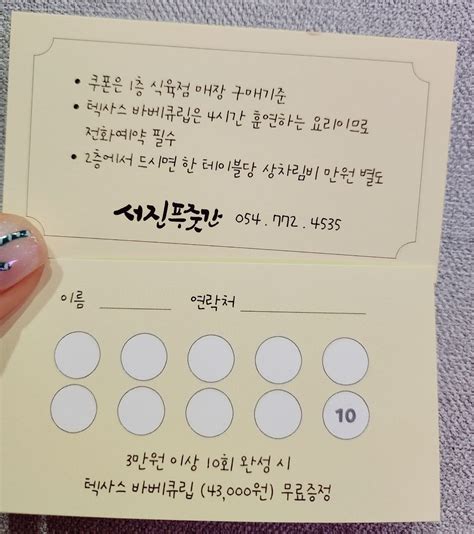 • 쿠폰은 1층 식육점 매장 구매기준
• 텍사스 바베큐립은 4시간 훈연하는 요리이므로
전화예약 필수
• 2층에서 드시면 한 테이블당 상차림비 만원 별도
서진푸줏간 054.772.4535
이름 연락처
10
3만원 이상 10회 완성 시
텍사스 바베큐립 (43,000원) 무료증정